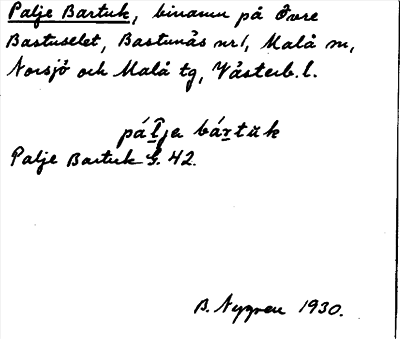 Palje Bartuk, binamn på Övre
Bastuselet, Bastunäs nr 1, Malå sn,
Norsjö och Malå tg, Västerb. l.
pálja bártuk
Palje Bartuk G. 42.
B. Nygren 1930.